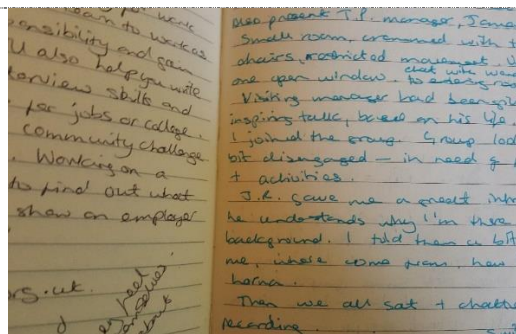 for work
team to work as
responsibility and gain
u also help you write
interview skills and
for jobs or college.
community challenge
. Working on a
to find out what
show an employer
rs.uk.
feel
also present T.P. manager, James
Small room, crammed with
chairs, restricted movement.
one open window. to entering room
chat with
Visiting manager had been
inspiring talk, based on his life.
I joined the group. Group
bit disengaged — in need of
+ activities.
J.R. gave me a great
he understands why I'm there
background. I told them a bit
me, whose come from, how
Then we all sat +
recording.